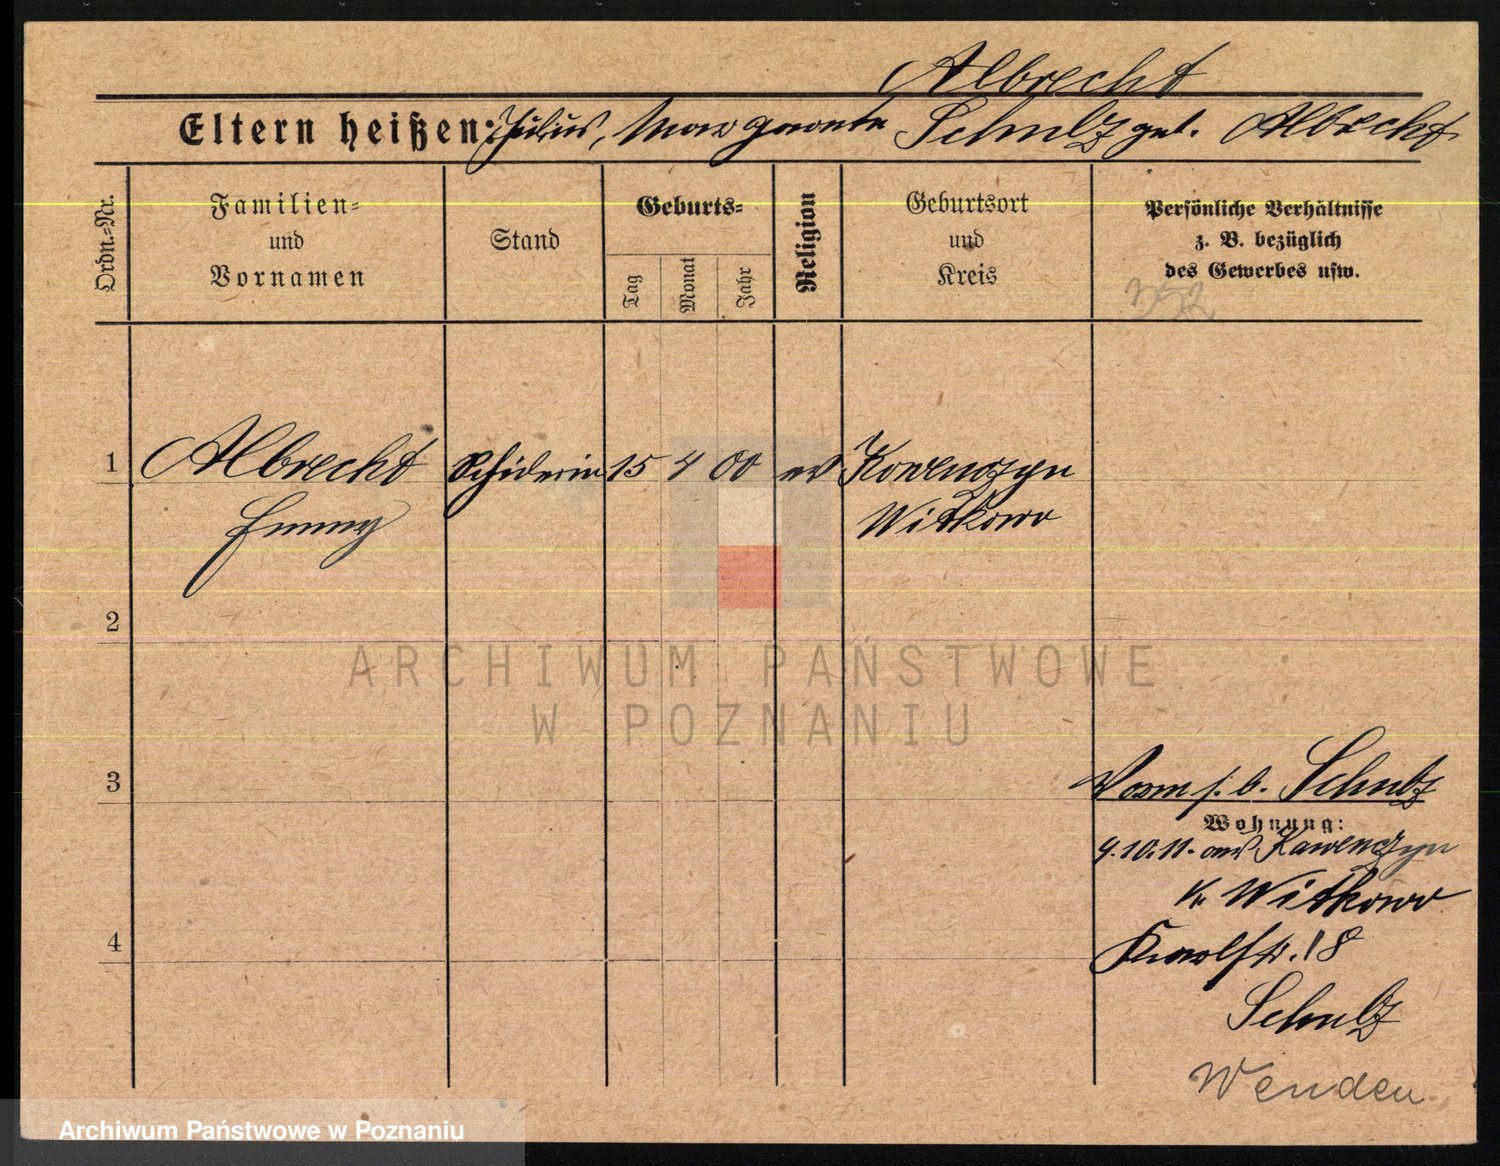 Albrecht
Eltern heißen: Julius, Margarete Schulz geb. Albrecht
Ordn.=Nr.
Familien=
und
Vornamen
Stand
Geburts=
Tag
Monat
Jahr
Religion
Geburtsort
und
Kreis
Persönliche Verhältnisse
z. B. bezüglich
des Gewerbes usw.
352
1 Albrecht Schülerin 15 4 00 ev Kawenczyn
Emmy Witkowo
2
ARCHIWUM PAŃSTWOWE
W POZNANIU
3
Vorm. f. b. Schulz
Wohnung:
9.10.11. aus Kawenczyn
Kr Witkowo
4
Karlstr. 18
Schulz
Wenden
Archiwum Państwowe w Poznaniu